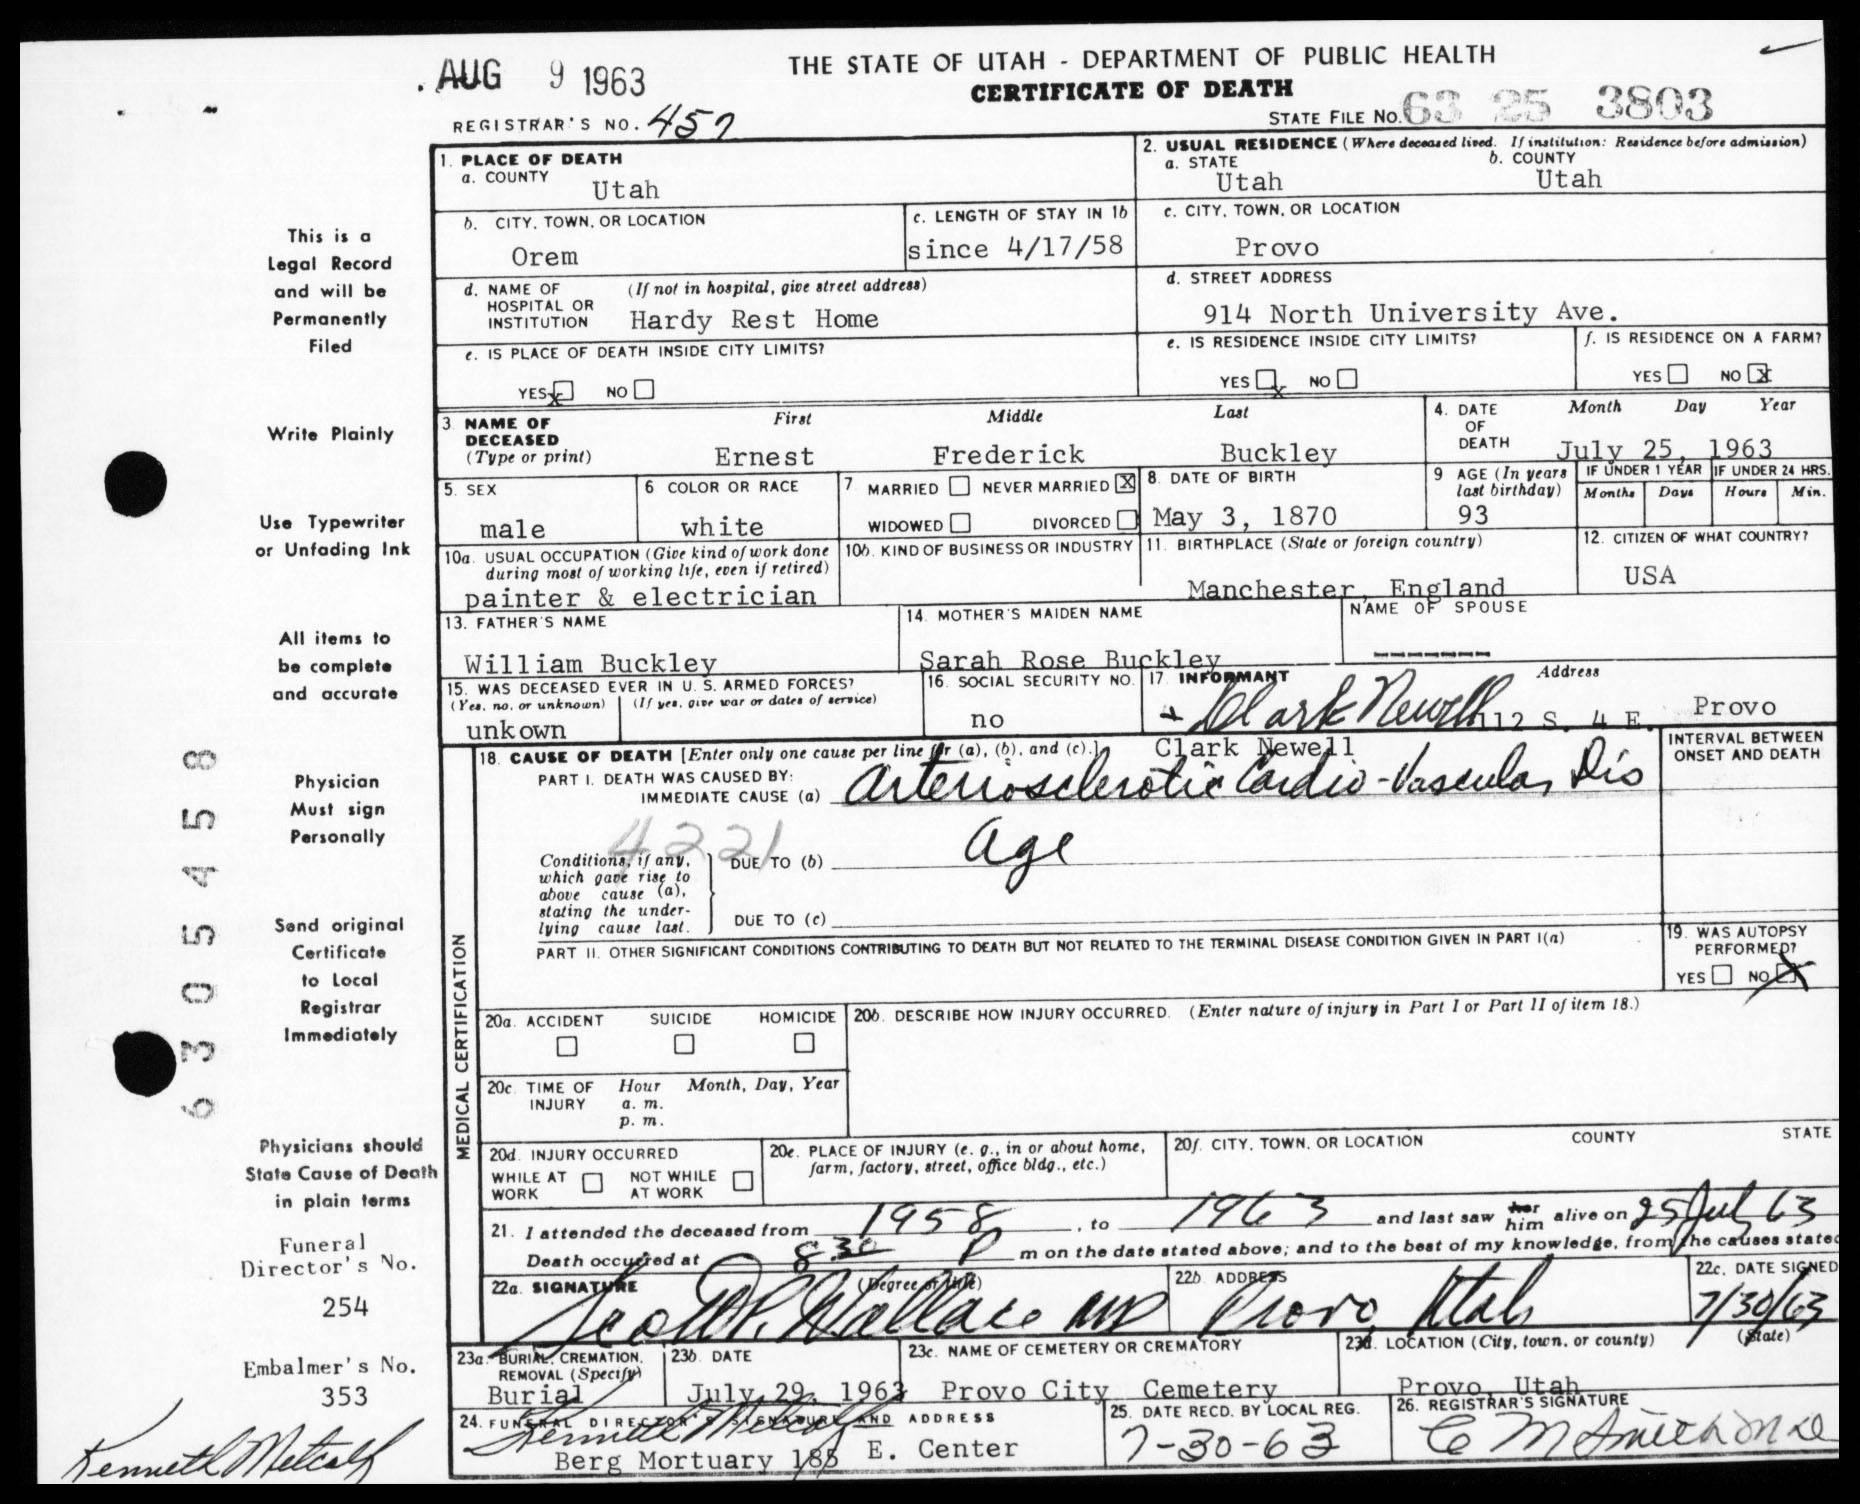 AUG 9 1963
THE STATE OF UTAH - DEPARTMENT OF PUBLIC HEALTH
CERTIFICATE OF DEATH
REGISTRAR'S NO. 457
STATE FILE NO. 63 25 3803
1. PLACE OF DEATH
a. COUNTY
Utah
2. USUAL RESIDENCE (Where deceased lived. If institution: Residence before admission)
a. STATE b. COUNTY
Utah Utah
b. CITY, TOWN, OR LOCATION
Orem
c. LENGTH OF STAY IN 1b
since 4/17/58
c. CITY, TOWN, OR LOCATION
Provo
d. NAME OF HOSPITAL OR INSTITUTION (If not in hospital, give street address)
Hardy Rest Home
d. STREET ADDRESS
914 North University Ave.
e. IS PLACE OF DEATH INSIDE CITY LIMITS?
YES x NO
e. IS RESIDENCE INSIDE CITY LIMITS?
YES x NO
f. IS RESIDENCE ON A FARM?
YES NO X
3 NAME OF DECEASED (Type or print)
First Middle Last
Ernest Frederick Buckley
4. DATE OF DEATH
Month Day Year
July 25, 1963
5. SEX
male
6 COLOR OR RACE
white
7 MARRIED NEVER MARRIED X
WIDOWED DIVORCED
8. DATE OF BIRTH
May 3, 1870
9 AGE (In years last birthday)
93
IF UNDER 1 YEAR
Months Days
IF UNDER 24 HRS.
Hours Min.
10a. USUAL OCCUPATION (Give kind of work done during most of working life, even if retired)
painter & electrician
10b. KIND OF BUSINESS OR INDUSTRY
11. BIRTHPLACE (State or foreign country)
Manchester, England
12. CITIZEN OF WHAT COUNTRY?
USA
13. FATHER'S NAME
William Buckley
14. MOTHER'S MAIDEN NAME
Sarah Rose Buckley
NAME OF SPOUSE
-------
15. WAS DECEASED EVER IN U. S. ARMED FORCES?
(Yes, no, or unknown) (If yes, give war or dates of service)
unkown
16. SOCIAL SECURITY NO.
no
17. INFORMANT Address
Clark Newell 112 S. 4 E. Provo
Clark Newell
MEDICAL CERTIFICATION
18. CAUSE OF DEATH [Enter only one cause per line for (a), (b), and (c).]
INTERVAL BETWEEN ONSET AND DEATH
PART I. DEATH WAS CAUSED BY:
IMMEDIATE CAUSE (a) Arteriosclerotic Cardio-Vascular Dis
4221
Conditions, if any, which gave rise to above cause (a), stating the underlying cause last.
DUE TO (b) age
DUE TO (c)
PART II. OTHER SIGNIFICANT CONDITIONS CONTRIBUTING TO DEATH BUT NOT RELATED TO THE TERMINAL DISEASE CONDITION GIVEN IN PART I(a)
19. WAS AUTOPSY PERFORMED?
YES NO X
20a. ACCIDENT SUICIDE HOMICIDE
20b. DESCRIBE HOW INJURY OCCURRED. (Enter nature of injury in Part I or Part II of item 18.)
20c. TIME OF INJURY
Hour Month, Day, Year
a. m.
p. m.
20d. INJURY OCCURRED
WHILE AT WORK NOT WHILE AT WORK
20e. PLACE OF INJURY (e. g., in or about home, farm, factory, street, office bldg., etc.)
20f. CITY, TOWN, OR LOCATION COUNTY STATE
21. I attended the deceased from 1958, to 1963 and last saw her him alive on 25 July 63
Death occurred at 830 P m on the date stated above; and to the best of my knowledge, from the causes stated
22a. SIGNATURE (Degree or title)
Scott P. Wallace MD
22b. ADDRESS
Provo, Utah
22c. DATE SIGNED
7/30/63
23a. BURIAL, CREMATION, REMOVAL (Specify)
Burial
23b. DATE
July 29, 1963
23c. NAME OF CEMETERY OR CREMATORY
Provo City Cemetery
23d. LOCATION (City, town, or county) (State)
Provo, Utah
24. FUNERAL DIRECTOR'S SIGNATURE AND ADDRESS
Kenneth Metcalf
Berg Mortuary 185 E. Center
25. DATE RECD. BY LOCAL REG.
7-30-63
26. REGISTRAR'S SIGNATURE
C M Smith MD
This is a
Legal Record
and will be
Permanently
Filed
Write Plainly
Use Typewriter
or Unfading Ink
All items to
be complete
and accurate
Physician
Must sign
Personally
Send original
Certificate
to Local
Registrar
Immediately
Physicians should
State Cause of Death
in plain terms
Funeral
Director's No.
254
Embalmer's No.
353
Kenneth Metcalf
6305458